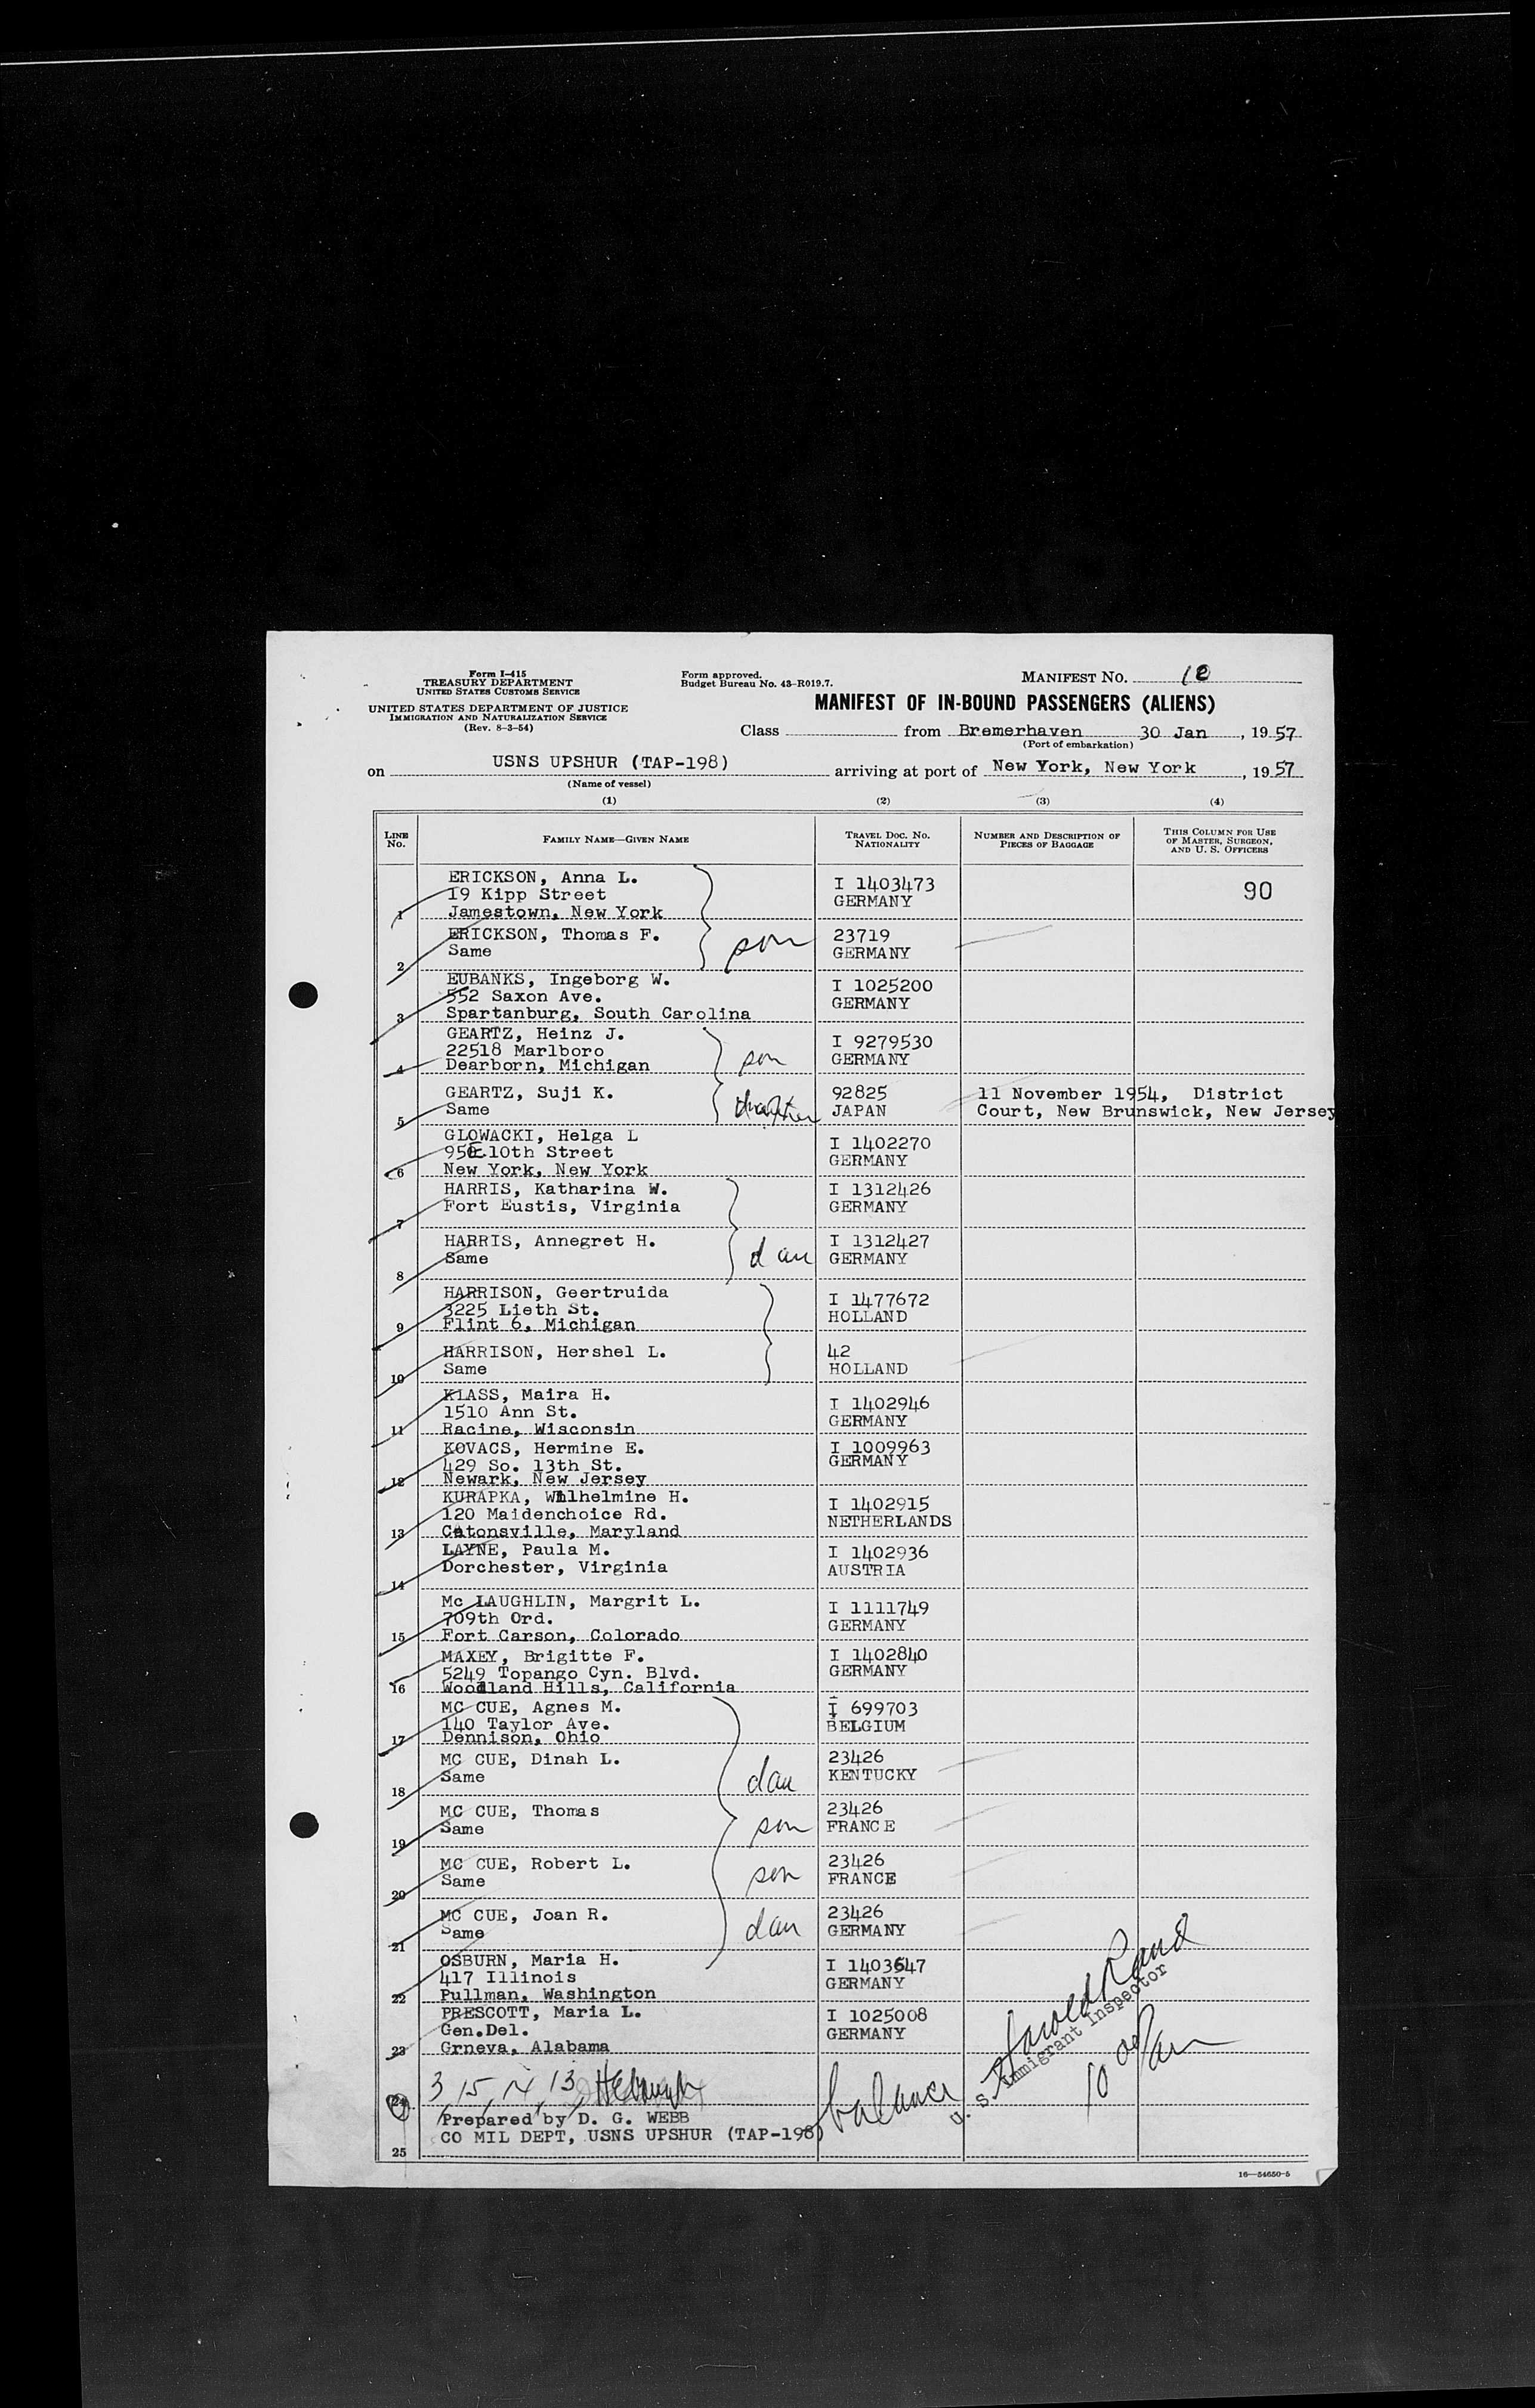 Form I-415
TREASURY DEPARTMENT
UNITED STATES CUSTOMS SERVICE
UNITED STATES DEPARTMENT OF JUSTICE
IMMIGRATION AND NATURALIZATION SERVICE
(Rev. 8-3-54)
Form approved.
Budget Bureau No. 43-R019.7.
MANIFEST NO. 12
MANIFEST OF IN-BOUND PASSENGERS (ALIENS)
Class from Bremerhaven 30 Jan, 1957
(Port of embarkation)
on USNS UPSHUR (TAP-198) arriving at port of New York, New York, 1957
(Name of vessel)
(1) (2) (3) (4)
LINE No. FAMILY NAME—GIVEN NAME TRAVEL DOC. NO. NATIONALITY NUMBER AND DESCRIPTION OF PIECES OF BAGGAGE THIS COLUMN FOR USE OF MASTER, SURGEON, AND U. S. OFFICERS
ERICKSON, Anna L. I 1403473 90
19 Kipp Street GERMANY
1 Jamestown, New York
ERICKSON, Thomas F. son 23719
Same GERMANY
2
EUBANKS, Ingeborg W. I 1025200
552 Saxon Ave. GERMANY
3 Spartanburg, South Carolina
GEARTZ, Heinz J. I 9279530
22518 Marlboro son GERMANY
4 Dearborn, Michigan
GEARTZ, Suji K. daughter 92825 11 November 1954, District
Same JAPAN Court, New Brunswick, New Jersey
5
GLOWACKI, Helga L I 1402270
95E 10th Street GERMANY
6 New York, New York
HARRIS, Katharina W. I 1312426
Fort Eustis, Virginia GERMANY
7
HARRIS, Annegret H. dau I 1312427
Same GERMANY
8
HARRISON, Geertruida I 1477672
3225 Lieth St. HOLLAND
9 Flint 6, Michigan
HARRISON, Hershel L. 42
10 Same HOLLAND
KLASS, Maira H. I 1402946
1510 Ann St. GERMANY
11 Racine, Wisconsin
KOVACS, Hermine E. I 1009963
429 So. 13th St. GERMANY
12 Newark, New Jersey
KURAPKA, Wilhelmine H. I 1402915
120 Maidenchoice Rd. NETHERLANDS
13 Catonsville, Maryland
LAYNE, Paula M. I 1402936
Dorchester, Virginia AUSTRIA
14
Mc LAUGHLIN, Margrit L. I 1111749
709th Ord. GERMANY
15 Fort Carson, Colorado
MAXEY, Brigitte F. I 1402840
5249 Topango Cyn. Blvd. GERMANY
16 Woodland Hills, California
MC CUE, Agnes M. I 699703
140 Taylor Ave. BELGIUM
17 Dennison, Ohio
MC CUE, Dinah L. dau 23426
Same KENTUCKY
18
MC CUE, Thomas son 23426
Same FRANCE
19
MC CUE, Robert L. son 23426
Same FRANCE
20
MC CUE, Joan R. dau 23426
Same GERMANY
21
OSBURN, Maria H. I 1403647
417 Illinois GERMANY
22 Pullman, Washington
PRESCOTT, Maria L. I 1025008
Gen.Del. GERMANY
23 Grneva, Alabama
3, 15, 14, 13,
24
Prepared by D. G. WEBB
CO MIL DEPT, USNS UPSHUR (TAP-198)
25
balance
Harold Rand
U. S. Immigrant Inspector
16—54650-5